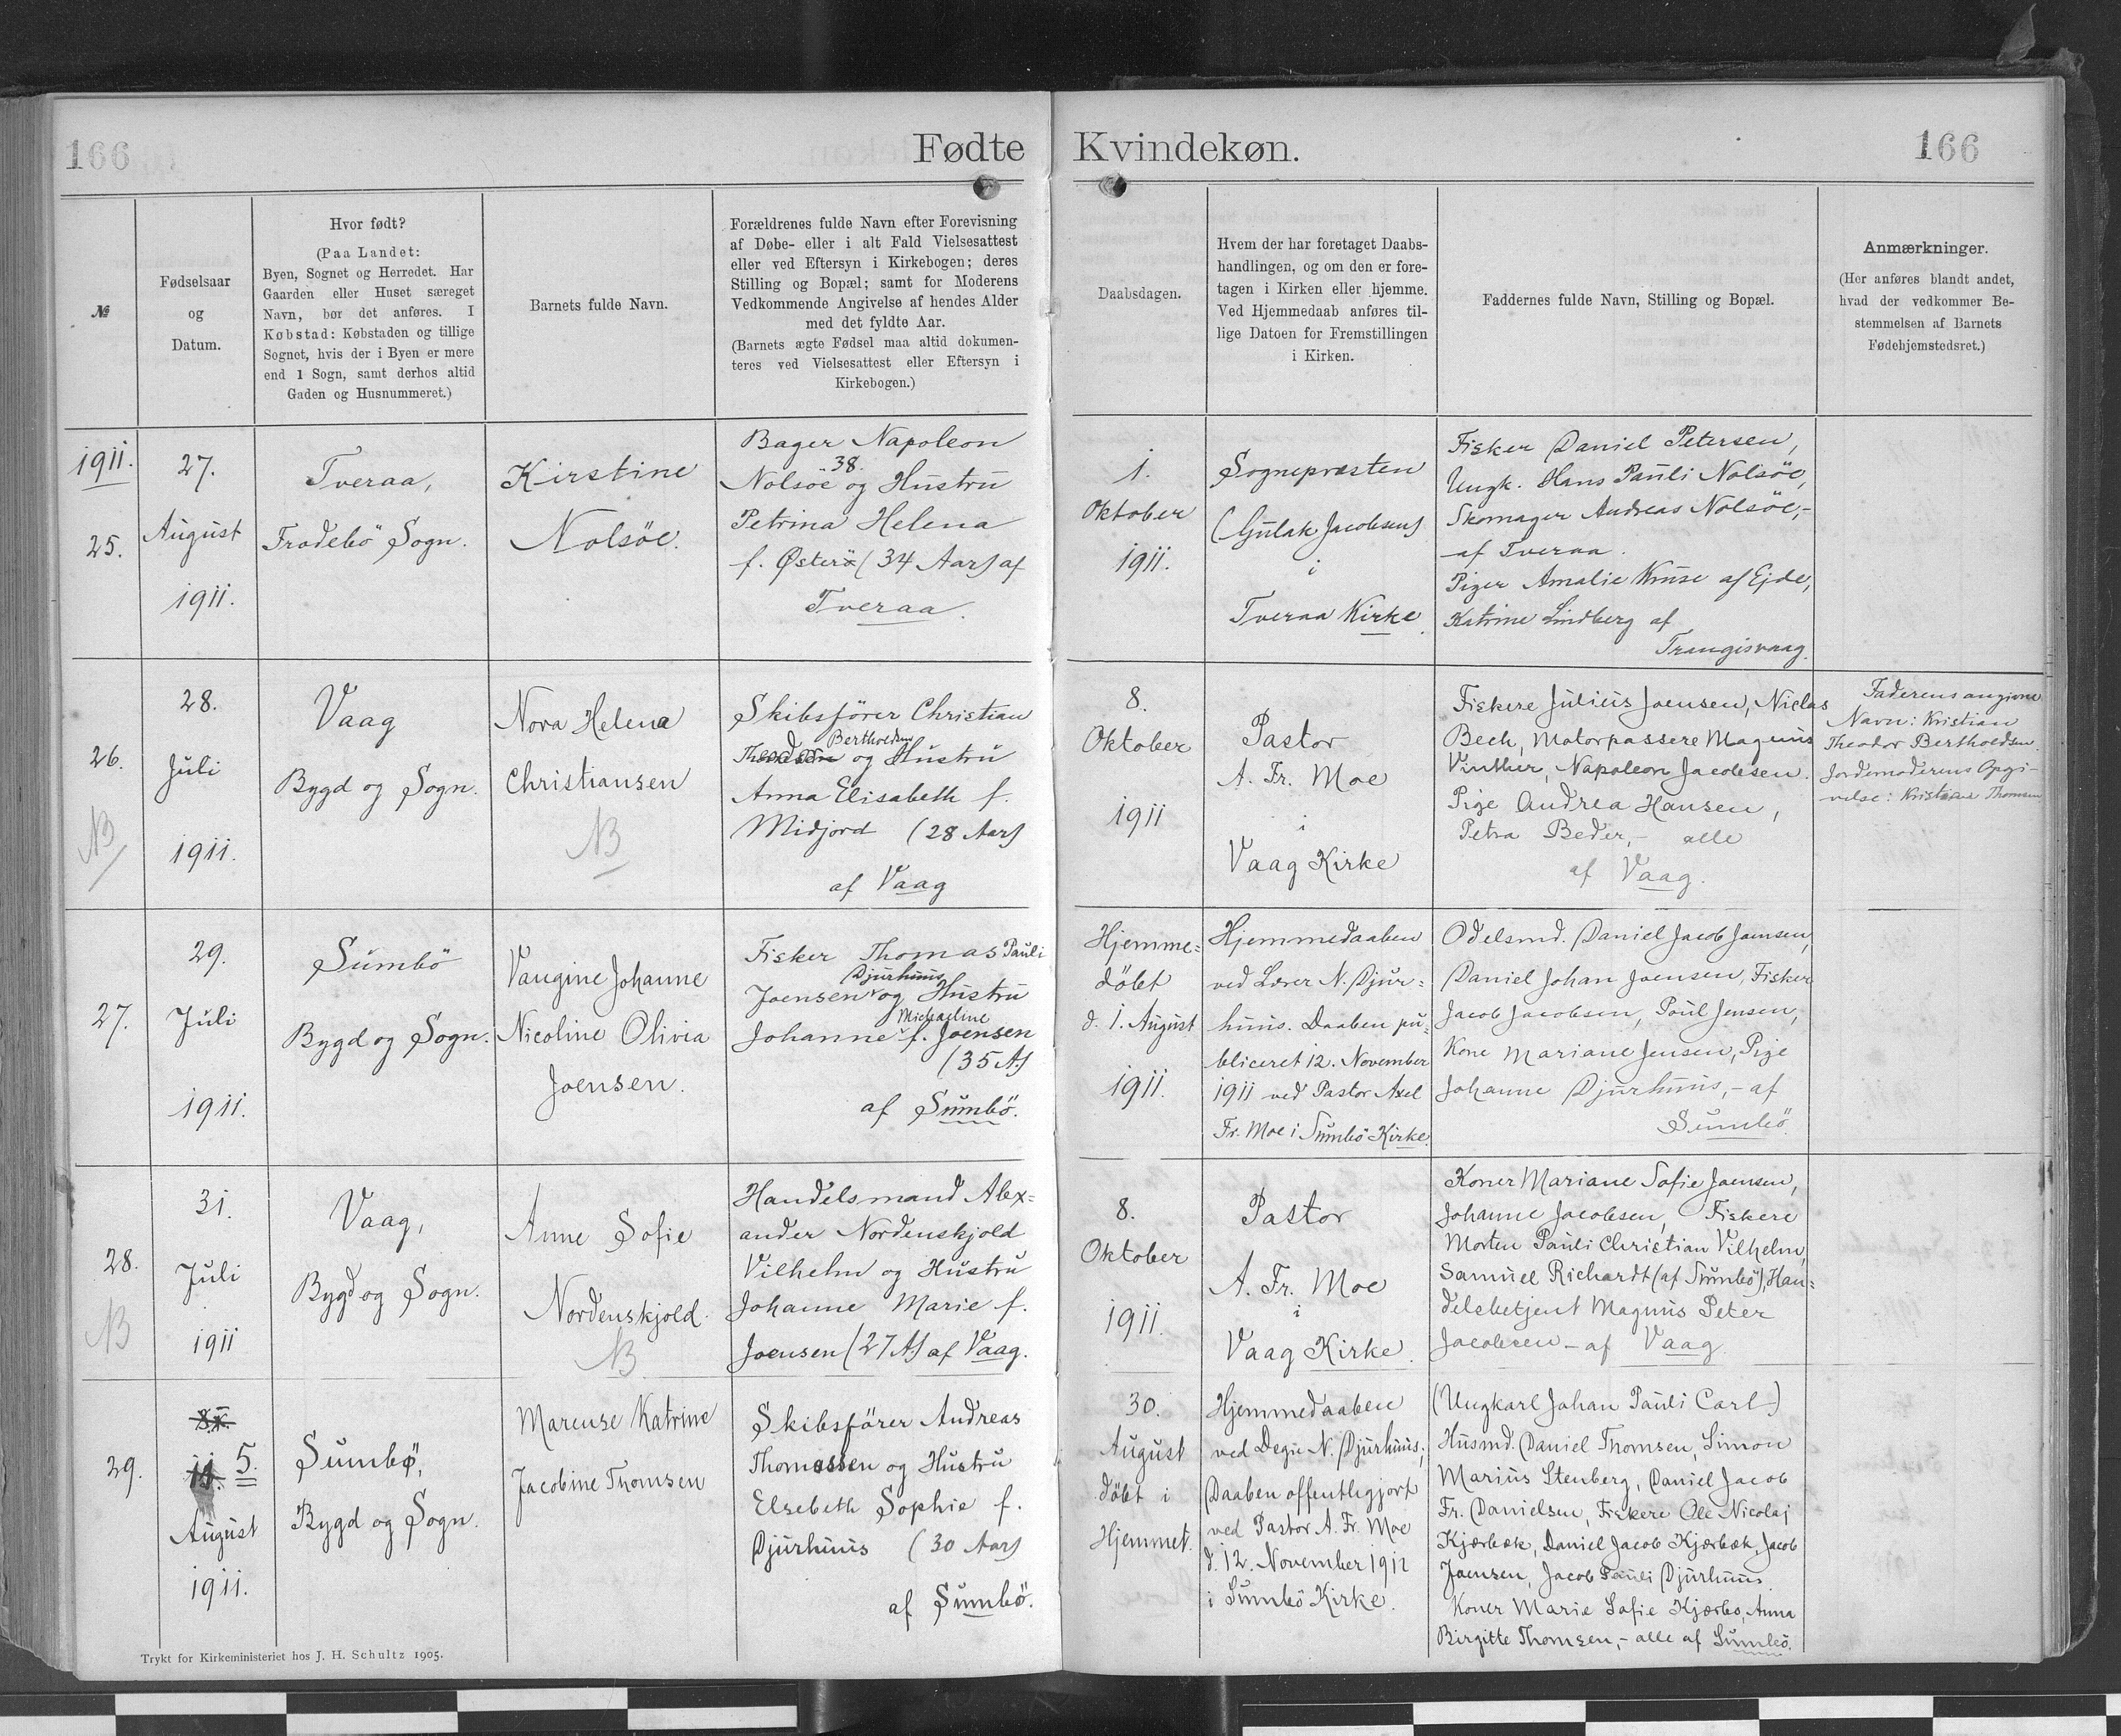 166
Fødte
Kvindekøn.
166
№
Fødselsaar
og
Datum.
Hvor født?
(Paa Landet:
Byen, Sognet og Herredet. Har
Gaarden eller Huset særeget
Navn, bør det anføres. I
Købstad: Købstaden og tillige
Sognet, hvis der i Byen er mere
end 1 Sogn, samt derhos altid
Gaden og Husnummeret.)
Barnets fulde Navn.
Forældrenes fulde Navn efter Forevisning
af Døbe- eller i alt Fald Vielsesattest
eller ved Eftersyn i Kirkebogen; deres
Stilling og Bopæl; samt for Moderens
Vedkommende Angivelse af hendes Alder
med det fyldte Aar.
(Barnets ægte Fødsel maa altid dokumen-
teres ved Vielsesattest eller Eftersyn i
Kirkebogen.)
Daabsdagen.
Hvem der har foretaget Daabs-
handlingen, og om den er fore-
tagen i Kirken eller hjemme.
Ved Hjemmedaab anføres til-
lige Datoen for Fremstillingen
i Kirken.
Faddernes fulde Navn, Stilling og Bopæl.
Anmærkninger.
(Her anføres blandt andet,
hvad der vedkommer Be-
stemmelsen af Barnets
Fødehjemstedsret.)
1911.
25.
27.
August
1911.
Tveraa,
Frodebö Sogn.
Kirstine
Nolsöe.
Bager Napoleon
38.
Nolsöe og Hustru
Petrina Helena
f. Østerö (34 Aar) af
Tveraa.
1.
Oktober
1911.
Sognepræsten
(Gulak Jacobsen)
i
Tveraa Kirke.
Fisker Daniel Petersen,
Ungk. Hans Pauli Nolsöe,
Skomager Andreas Nolsöe,-
af Tveraa.
Piger Amalie Kruse af Ejde,
Katrine Lindberg af
Trangisvaag.
26.
NB
28.
Juli
1911.
Vaag
Bygd og Sogn.
Nora Helena
Christiansen
NB
Skibsförer Christian
Bertholdsen
og Hustru
Anna Elisabeth f.
Midjord (28 Aar)
af Vaag
8.
Oktober
1911
Pastor
A. Fr. Moe
i
Vaag Kirke
Fiskere Julius Joensen, Niclas
Bech, Motorpassere Magnus
Vinther, Napoleon Jacobsen.
Pige Andrea Hansen,
Petra Beder,- alle
af Vaag.
Faderens angivne
Navn: Kristian
Theodor Bertholdsen.
Jordemoderens Opgi-
velse: Kristian Thomsen
27.
29.
Juli
1911.
Sumbö
Bygd og Sogn.
Vaugine Johanne
Nicoline Olivia
Joensen.
Fisker Thomas Pauli
Djurhuus
Joensen og Hustru
Michaeline
Johanne f. Joensen
(35 A.)
af Sumbö.
Hjemme=
döbt
d. 1. August
1911.
Hjemmedaaben
ved Lærer N. Djur=
huus. Daaben pu=
bliceret 12. November
1911 ved Pastor Axel
Fr. Moe i Sumbö Kirke.
Odelsmd. Daniel Jacob Joensen,
Daniel Johan Joensen, Fisker
Jacob Jacobsen, Poul Jensen,
Kone Mariane Jensen, Pige
Johanne Djurhuus,- af
Sumbö.
28.
NB
31.
Juli
1911
Vaag,
Bygd og Sogn.
Anne Sofie
Nordenskjold.
NB
Handelsmand Alex=
ander Nordenskjold
Vilhelm og Hustru
Johanne Marie f.
Joensen (27 A) af Vaag.
8.
Oktober
1911.
Pastor
A. Fr. Moe
i
Vaag Kirke.
Koner Mariane Sofie Joensen,
Johanne Jacobsen, Fiskere
Morten Pauli Christian Vilhelm,
Samuel Richardt (af Sumbö), Han=
delsbetjent Magnus Peter
Jacobsen - af Vaag.
29.
5.
August
1911.
Sumbø,
Bygd og Sogn.
Mareuse Katrine
Jacobine Thomsen
Skibsförer Andreas
Thomassen og Hustru
Elsebeth Sophie f.
Djurhuus (30 Aar)
af Sumbö.
30.
August
döbt i
Hjemmet.
Hjemmedaaben
ved Degn N. Djurhuus;
Daaben offentliggjort
ved Pastor A. Fr. Moe
d. 12. November 1911
i Sumbö Kirke.
(Ungkarl Johan Pauli Carl)
Husmd. Daniel Thomsen, Simon
Marius Stenberg, Daniel Jacob
Fr. Danielsen, Fiskere Ole Nicolaj
Kjærbæk, Daniel Jacob Kjærbæk, Jacob
Joensen, Jacob Pauli Djurhuus.
Koner Maria Sofie Kjærbo, Anna
Birgitte Thomsen,- alle af Sumbö.
Trykt for Kirkeministeriet hos J. H. Schultz 1905.